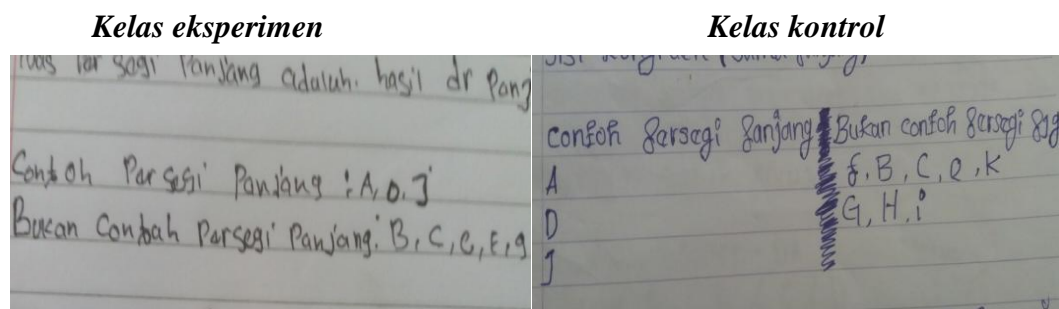 Kelas eksperimen
Kelas kontrol
luas Persegi Panjang adalah hasil dr Panj
Contoh Persegi Panjang : A, D, J
Bukan Contoh Persegi Panjang. B, C, e, F, g
Contoh Persegi Panjang
A
D
J
Bukan contoh Persegi
f, B, C, e, K
G, H, i